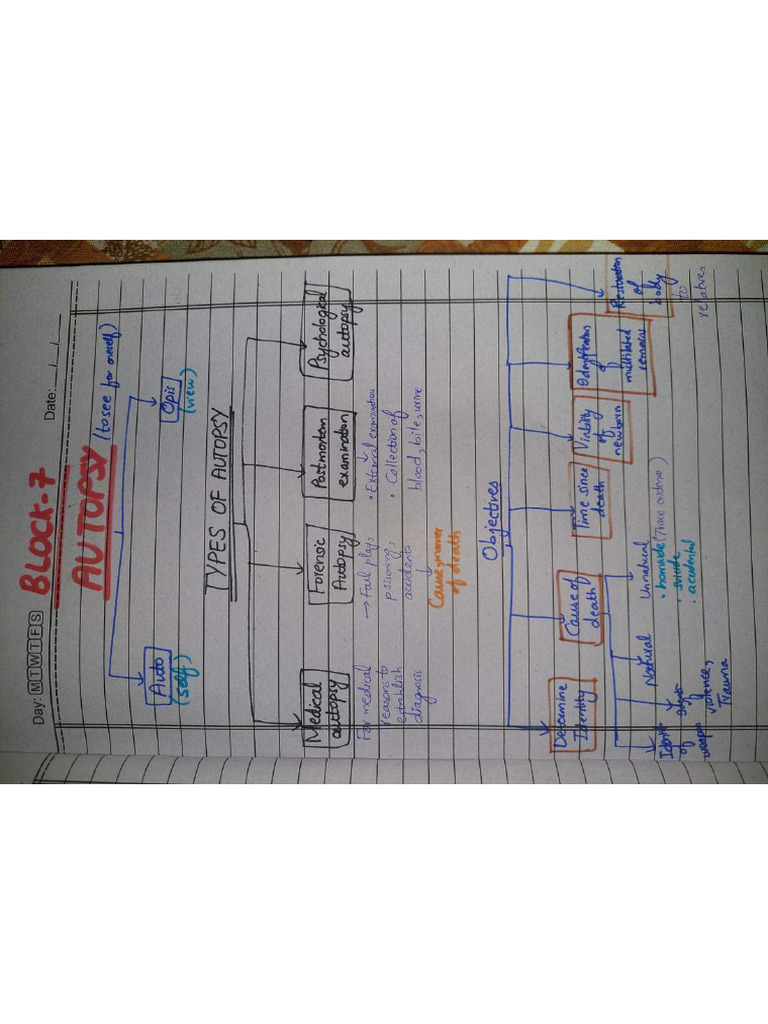 Day: M T W T F S
Date: / /
BLOCK-7
AUTOPSY (to see for oneself)
Auto
(self)
Opis
(view)
TYPES OF AUTOPSY
Medical
autopsy
For medical
reasons to
establish
diagnosis
Forensic
Autopsy
→ Foul play,
poisoning,
accidents
Cause, manner
of death
Postmortem
examination
• External examination
• Collection of
blood, bile, urine
Psychological
autopsy
Objectives
Determine
Identity
Cause of
death
Time since
death
Viability
of
newborn
Identification
of
mutilated
remains
Restoration
of
body
to
relatives
of
weapon
violence,
Trauma
Natural
Unnatural
• homicide (Trace evidence)
• suicide
• accidental